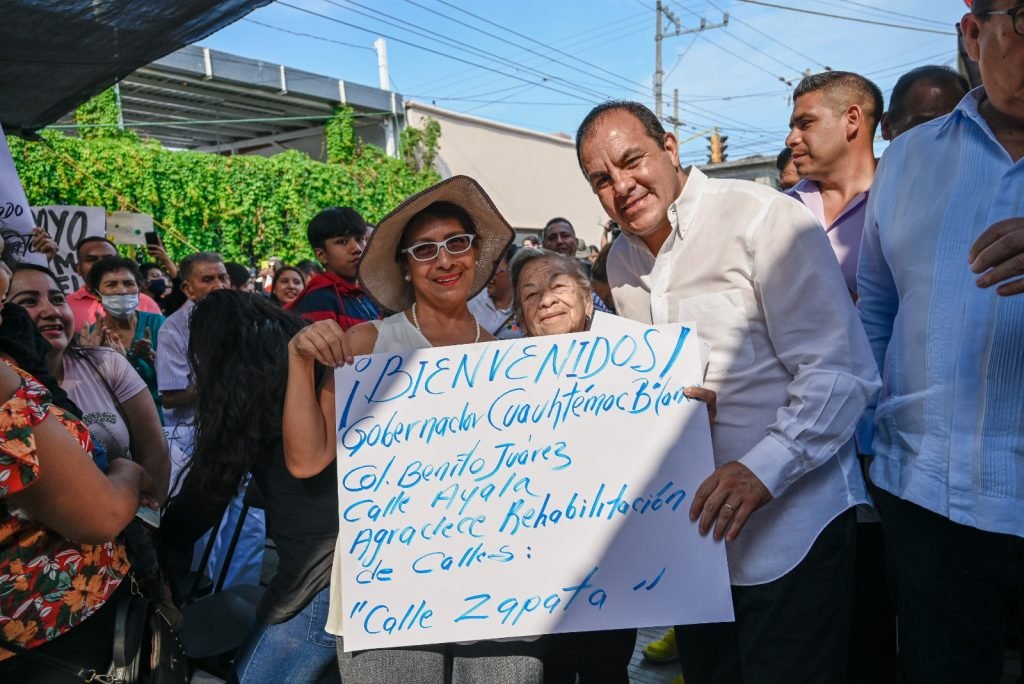 ¡BIENVENIDOS!
Gobernador Cuauhtémoc Blan
Col. Benito Juárez
Calle Ayala
Agradece Rehabilitación
de Calles:
"Calle Zapata"